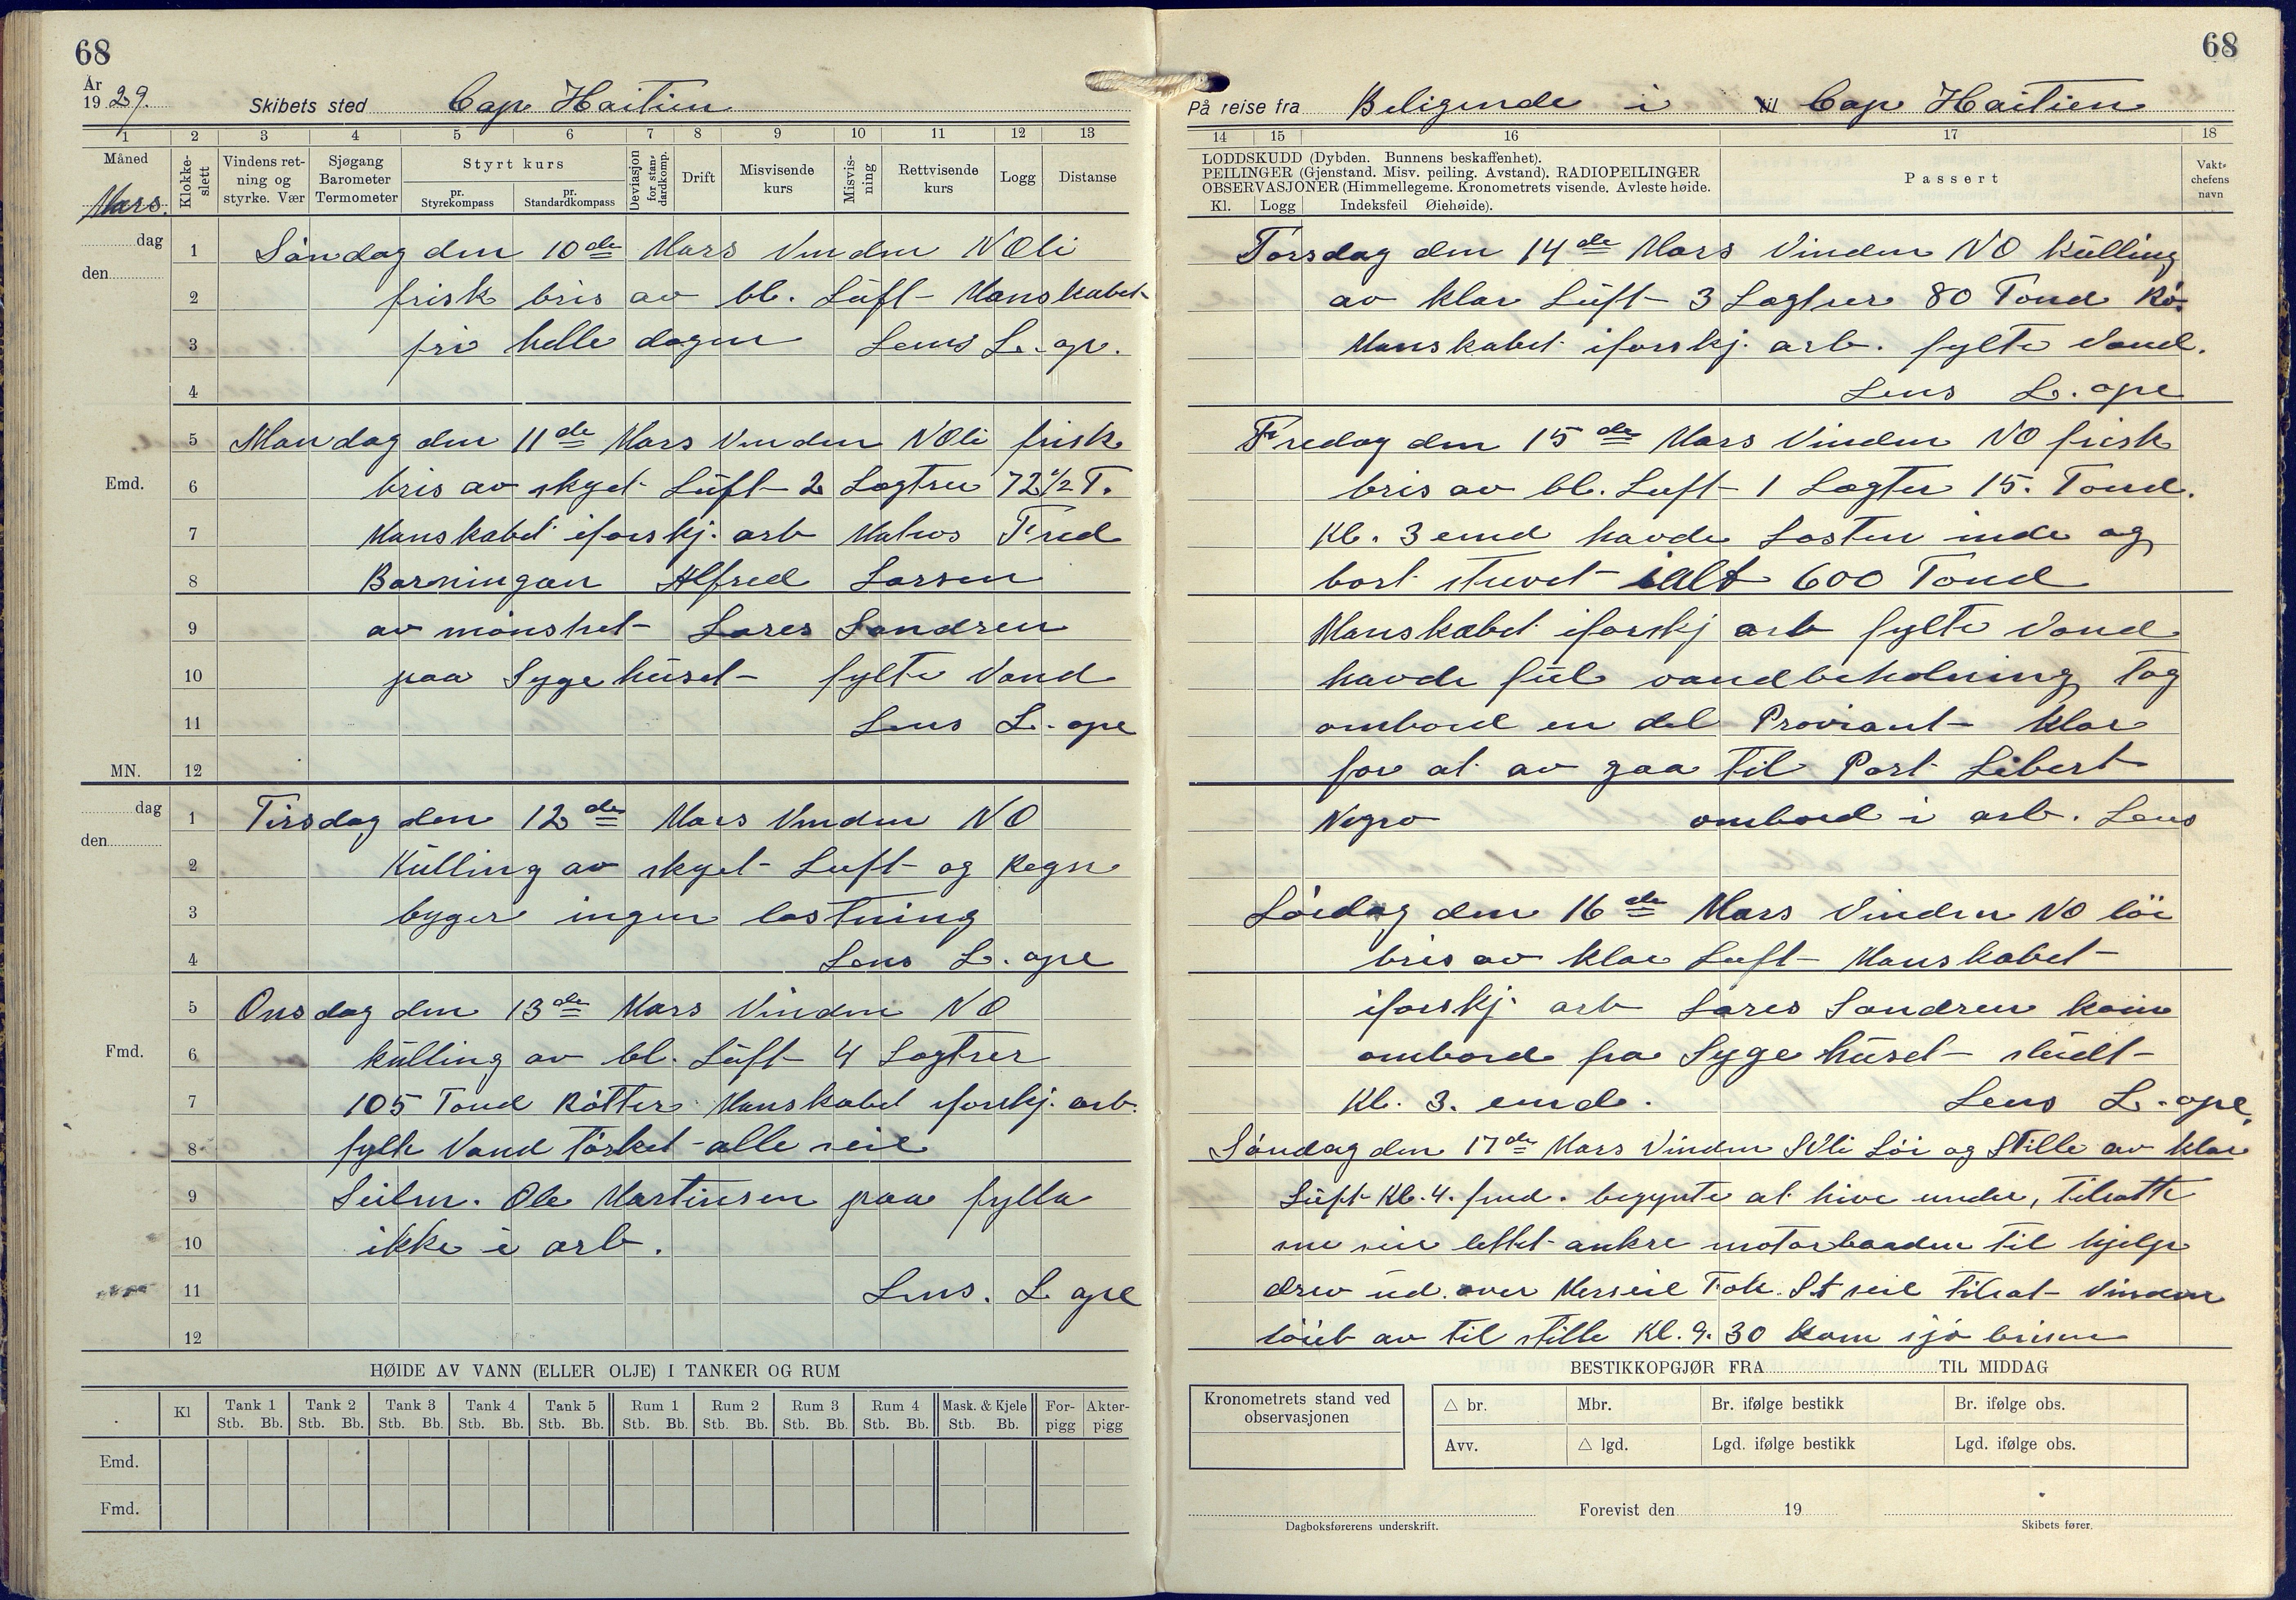 68
År
1929.
Skibets sted Cap Haitien
1 2 3 4 5 6 7 8 9 10 11 12 13
Måned
Mars.
Klokke-slett
Vindens ret-ning og styrke. Vær
Sjøgang Barometer Termometer
Styrt kurs
pr. Styrekompass
pr. Standardkompass
Deviasjon for stan-dardkomp.
Drift
Misvisende kurs
Misvis-ning
Rettvisende kurs
Logg
Distanse
dag
den
1 Søndag den 10de Mars Vinden NOli
2 frisk bris av bl. Luft Manskabet
3 fri helle dagen Lens L. ope.
4
5 Mandag den 11de Mars Vinden NOli frisk
Emd. 6 bris av skyet Luft 2 Lagtrer 72 1/2 T.
7 Manskabet iforskj. arb Matros Fred
8 Barningan Alfred Larsen
9 av mønstret Lares Sandren
10 paa Sygehuset fylte Vand
11 Lens L. ope
MN. 12
dag
den
1 Tirsdag den 12de Mars Vinden NO
2 Kulling av skyet Luft og Regn
3 byger ingen lastning
4 Lens L. ope
5 Onsdag den 13de Mars Vinden NO
Fmd. 6 kulling av bl. Luft 4 Lagtrer
7 105 Tond Røtter Manskabet iforskj. arb.
8 fylte Vand Tørket alle seil
9 Seilm. Ole Martinsen paa fylla
10 ikke i arb.
11 Lens. L ope
12
HØIDE AV VANN (ELLER OLJE) I TANKER OG RUM
Kl Tank 1 Tank 2 Tank 3 Tank 4 Tank 5 Rum 1 Rum 2 Rum 3 Rum 4 Mask. & Kjele For-pigg Akter-pigg
Stb. Bb. Stb. Bb. Stb. Bb. Stb. Bb. Stb. Bb. Stb. Bb. Stb. Bb. Stb. Bb. Stb. Bb. Stb. Bb.
Emd.
Fmd.
68
På reise fra Beligende i til Cap Haitien
14 15 16 17 18
LODDSKUDD (Dybden. Bunnens beskaffenhet).
PEILINGER (Gjenstand. Misv. peiling. Avstand). RADIOPEILINGER
OBSERVASJONER (Himmellegeme. Kronometrets visende. Avleste høide.
Kl. Logg Indeksfeil Øiehøide).
Passert
Vakt-chefens navn
Torsdag den 14de Mars Vinden NO Kulling
av klar Luft 3 Lagtrer 80 Tond Rø.
Manskabet iforskj. arb. fylte Vand.
Lens L. ope
Fredag den 15de Mars Vinden NO frisk
bris av bl. Luft 1 Lagter 15. Tond.
Kl. 3 emd havde Lasten inde og
bort stuvet ialt 600 Tond
Manskabet iforskj arb fylte Vand
havde ful vandbeholning Tog
ombord en del Proviant klar
for at av gaa til Port Libert
Negro ombord i arb. Lens
Lørdag den 16de Mars Vinden NO løi
bris av klar Luft Manskabet
iforskj. arb Lares Sandren kom
ombord fra Sygehuset
Kl. 3. emd. Lens L. ope.
Søndag den 17de Mars Vinden SVli Løi og Stille av klar
Luft Kl. 4. fmd. begynte at hive under, tilsatte
seil lettet ankre motorbaaden til hjelp
drev ud over Merseil Fok. St seil tilsat Vinden
løiet av til stille Kl. 9.30 kom sjø brisen
BESTIKKOPGJØR FRA TIL MIDDAG
Kronometrets stand ved observasjonen
△ br. Mbr. Br. ifølge bestikk Br. ifølge obs.
Avv. △ lgd. Lgd. ifølge bestikk Lgd. ifølge obs.
Forevist den 19
Dagboksførerens underskrift.
Skibets fører.